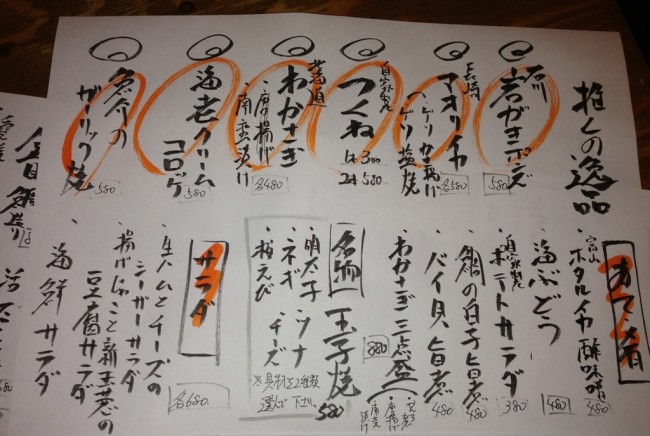 推しの逸品
石川
岩がきポン酢
580
長崎
アオリイカ
・ゲソかき揚げ
・ゲソ塩焼
各580
自家製
つくね
1本 300
2本 580
わかさぎ
・唐揚げ
・南蛮漬け
各480
海老クリーム
コロッケ
580
倉介の
ガーリック焼
580
金目鯛煮付
おつまみ
富山
・ホタルイカ酢味噌
480
・海ぶどう
480
自家製
・ポテトサラダ
380
・鯛の白子旨煮
480
・バイ貝旨煮
480
・わかさぎ三点盛
880
唐揚げ
南蛮漬け
名物
玉子焼
580
・明太子
・ツナ
・ネギ
・チーズ
・桜えび
※具材を2種類
選んで下さい
サラダ
各680
・生ハムとチーズの
シーザーサラダ
・揚げじゃこと新玉葱の
豆腐サラダ
・海鮮サラダ